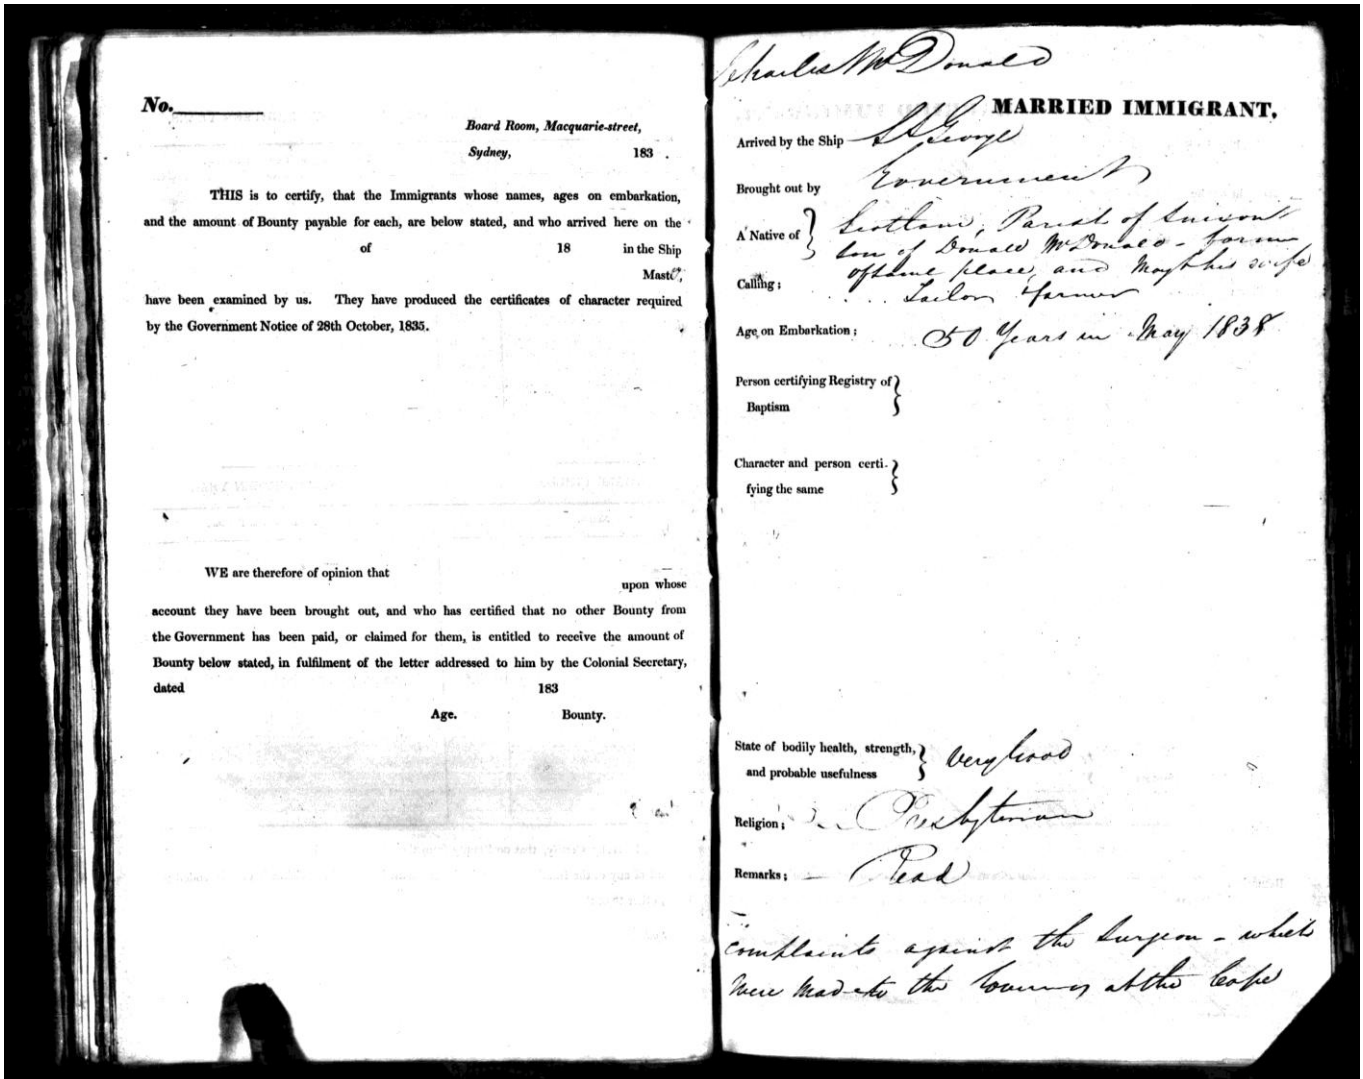 No.
Board Room, Macquarie-street,
Sydney, 183 .
THIS is to certify, that the Immigrants whose names, ages on embarkation,
and the amount of Bounty payable for each, are below stated, and who arrived here on the
of 18 in the Ship
Master,
have been examined by us. They have produced the certificates of character required
by the Government Notice of 28th October, 1835.
WE are therefore of opinion that
upon whose
account they have been brought out, and who has certified that no other Bounty from
the Government has been paid, or claimed for them, is entitled to receive the amount of
Bounty below stated, in fulfilment of the letter addressed to him by the Colonial Secretary,
dated 183
Age. Bounty.
Charles McDonald
MARRIED IMMIGRANT,
Arrived by the Ship St George
Brought out by Government
A Native of Scotland, Parish of
son of Donald McDonald - farmer
of same place, and his wife
Calling; Tailor & farmer
Age on Embarkation; 50 Years in May 1838
Person certifying Registry of
Baptism
Character and person certi-
fying the same
State of bodily health, strength,
and probable usefulness Very Good
Religion; Presbyterian
Remarks; Read
complaints against the Surgeon - which
were made to the Governor at the Cape